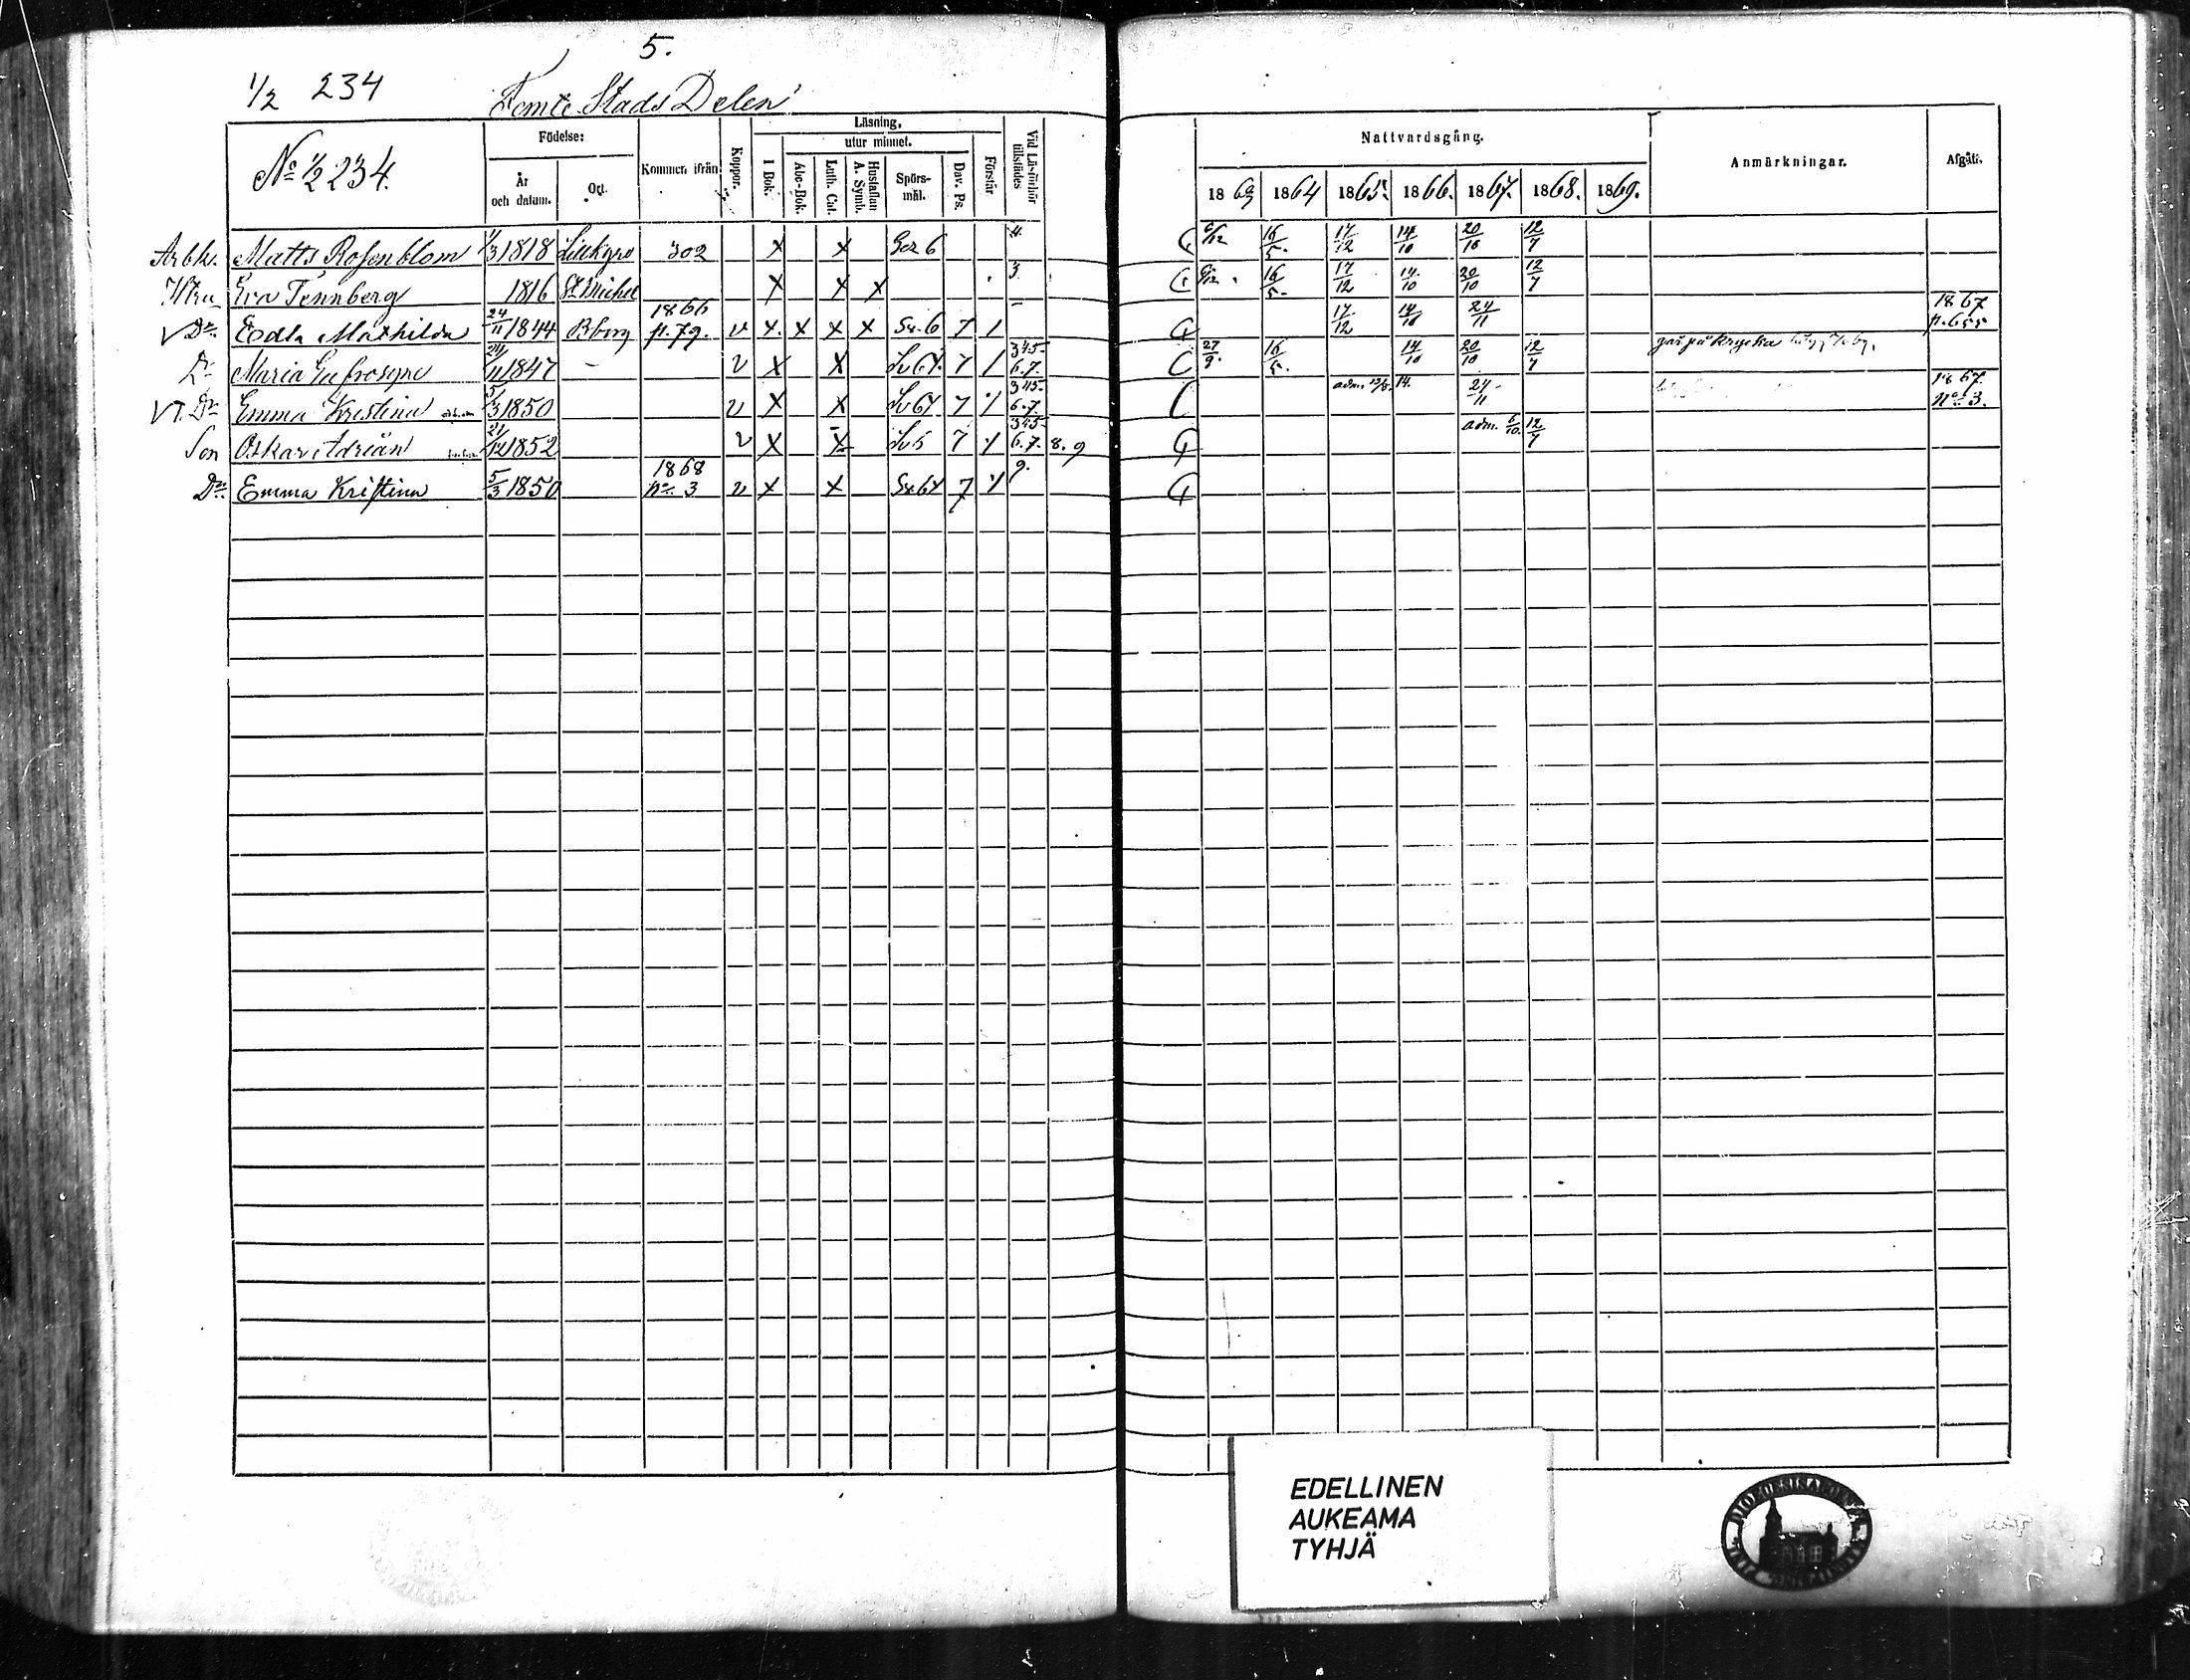 5.
1/2 234 Femte Stads Delen
No 1/2 234.
Födelse:
År och datum.
Ort.
Kommen ifrån
Koppor.
Läsning,
I Bok.
utur minnet.
Abc-Bok.
Luth. Cat.
Hustaflan A. Symb.
Spörs-mål.
Dav. Ps.
Förstår
Vid Läsförhör tillstädes
Nattvardsgång.
1863 1864 1865. 1866. 1867. 1868. 1869.
Anmärkningar.
Afgått.
Matts Rosenblom 1/3 1818 302 x x 6 4. 6/12 16/5. 17/12 14/10 20/10 12/7
Eva Tennberg 1816 St Michel x x x 3. 6/12. 16/5. 17/12 14/10 20/10 12/7
Dr. Edla Mathilda 24/11 1844 Borg 1866 p. 79. v x. x x x Sv. 6 7 1 17/12 14/10 24/11 1867 p. 655
Dr Maria 24/11 1847 – v x x Sv 6 7 1 345. 6.7. 27/9. 16/5. 14/10 20/10 12/7 går på krycka
Dr Emma Kristina 5/3 1850 v x x Sv 6 7 345. 6.7. adm. 14. 24/11 1867. No 3.
Son Oskar Adrian 21/12 1852 v x x Sv 5 7 345. 6.7. 8. 9 adm. 6/10. 12/7
Dr. Emma Kristina 5/3 1850 1868 No. 3 v x x Sv. 6 7 9.
EDELLINEN
AUKEAMA
TYHJÄ